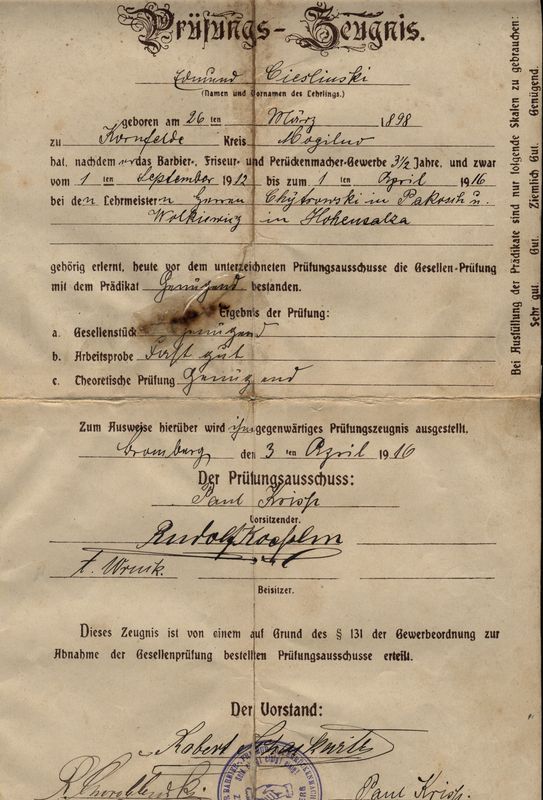 Prüfungs-Zeugnis.
Edmund Cieslinski
(Namen und Vornamen des Lehrlings.)
geboren am 26 ten März 1898
zu Kornfelde Kreis Mogilno
hat, nachdem er das Barbier-, Friseur- und Perückenmacher-Gewerbe 3½ Jahre, und zwar
vom 1 ten September 1912 bis zum 1 ten April 1916
bei den Lehrmeistern Herren Chytrowski in Pakosch u.
Wolkiewicz in Hohensalza
gehörig erlernt, heute vor dem unterzeichneten Prüfungsausschusse die Gesellen-Prüfung
mit dem Prädikat Genügend bestanden.
Ergebnis der Prüfung:
a. Gesellenstück genügend
b. Arbeitsprobe Fast gut
c. Theoretische Prüfung Genügend
Zum Ausweise hierüber wird ihm gegenwärtiges Prüfungszeugnis ausgestellt.
Bromberg den 3 ten April 1916
Der Prüfungsausschuss:
Paul Krisp
Vorsitzender.
Rudolf
Beisitzer.
Dieses Zeugnis ist von einem auf Grund des § 131 der Gewerbeordnung zur
Abnahme der Gesellenprüfung bestellten Prüfungsausschusse erteilt.
Der Vorstand:
Robert
Paul Krisp.
Bei Ausfüllung der Prädikate sind nur folgende Skalen zu gebrauchen:
Sehr gut. Gut. Ziemlich Gut. Genügend.